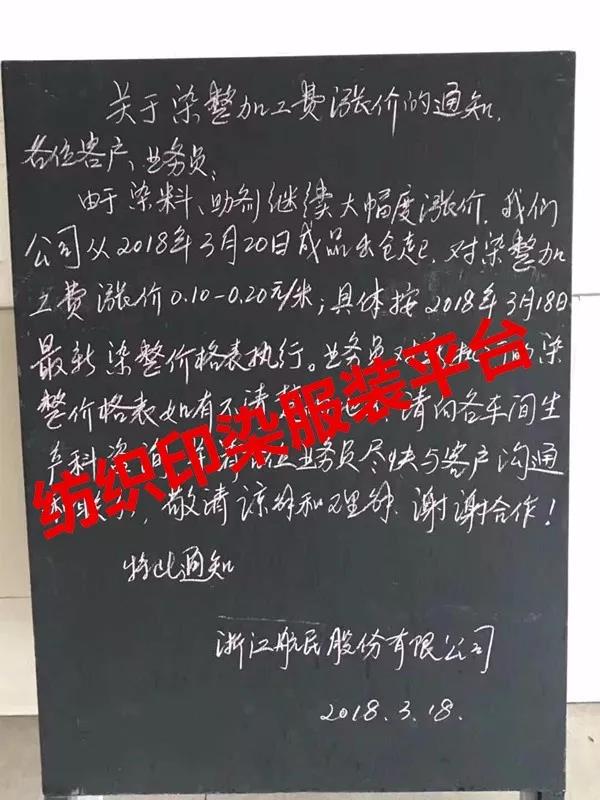 关于染整加工费涨价的通知.
各位客户、业务员:
由于染料、助剂继续大幅度涨价.我们
公司从2018年3月20日成品出仓起.对染整加
工费涨价0.10-0.20元/米;具体按2018年3月18日
最新染整价格表执行。业务员对 间染
整价格表如有不清 请向各车间生
产科咨询 业务员尽快与客户沟通
敬请谅解和理解.谢谢合作!
特此通知
浙江航民股份有限公司
2018.3.18.
纺织印染服装平台